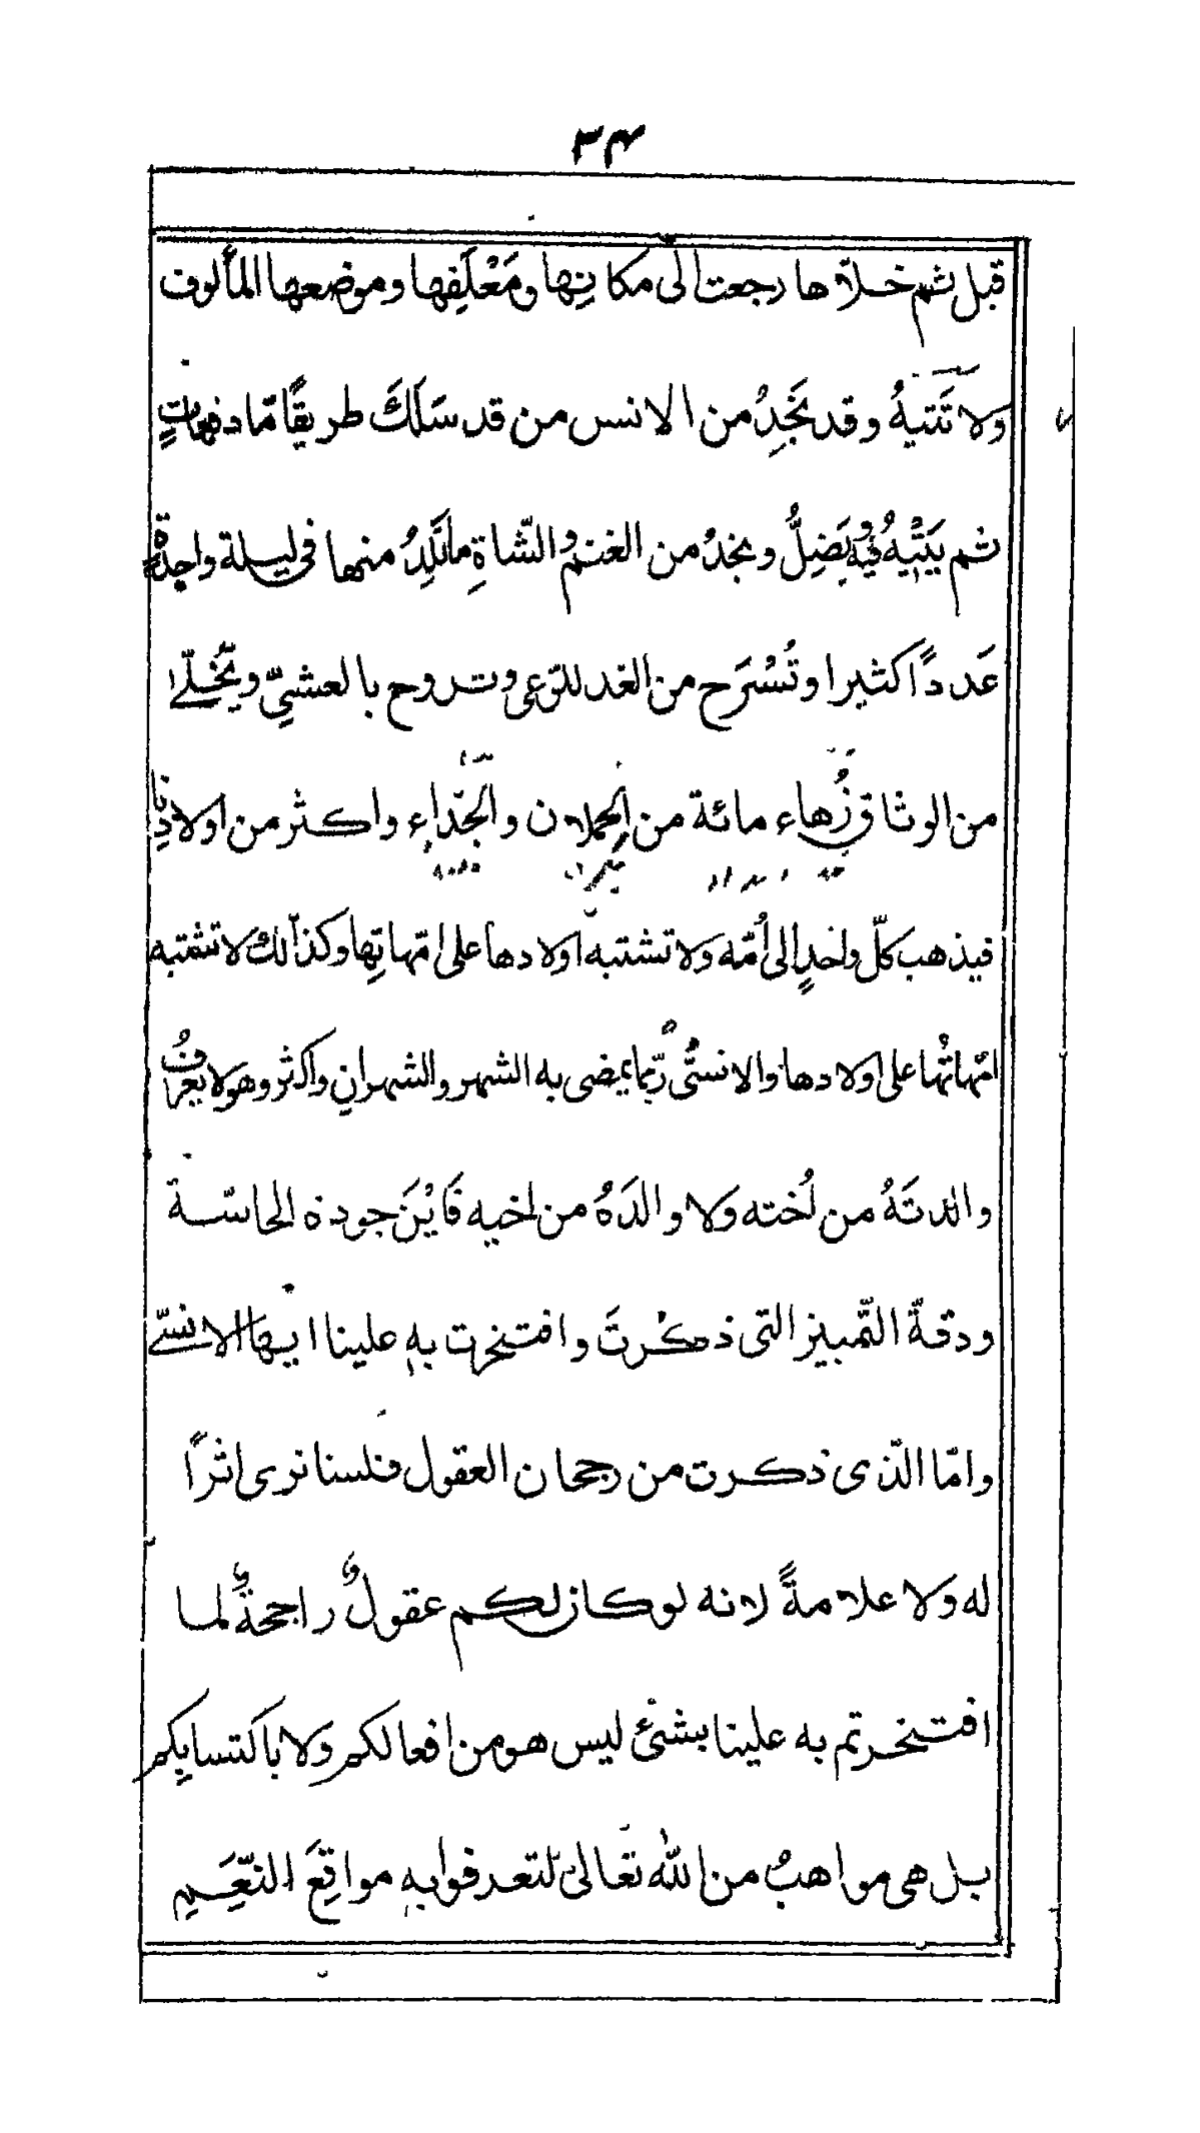 ٣٤
قبل ثم خلّاها رجعت الى مكانِها ومَعْلَفِها وموضعها المألوف
ولا تَتيهُ وقد تَجِدُ من الانس من قد سَلَكَ طريقًا مّا دفعاتٍ
ثم يَتِيهُ فيه يَضِلُّ وتجدُ من الغنم والشّاةِ ما تَلِدُ منها فى ليلة واحدةٍ
عَددًا كثيرا وتُسْرَح من الغد للرّعى وتروح بالعشيّ وتُخَلّى
من الوثاق زُهاء مائة من الحملان والجِداء واكثر من اولادِها
فيذهب كلّ واحدٍ الى اُمّه ولا تشتبه اولادها على امّهاتِها وكذالك لا تشتبه
امّهاتُها على اولادها والانسىُّ ربّما يمضى به الشهر والشهرانِ واكثر وهو لا يعرفُ
والدتَهُ من اُخته ولا والدَهُ من اخيه فَايْنَ جودة الحاسّة
ودقة التّمييز التى ذكرتَ وافتخرت بهٖ علينا ايها الانسىّ
وامّا الّذى ذكرت من رجحان العقول فلسنا نرى اثرًا
له ولا علامةً لانه لو كان لكم عقولٌ راجحةٌ لما
افتخرتم به علينا بشئ ليس هو من افعالكم ولا باكتسابِكم
بل هى مواهبُ من الله تعالىٰ لتعرفوا بهٖ مواقِعَ النِّعَمِ